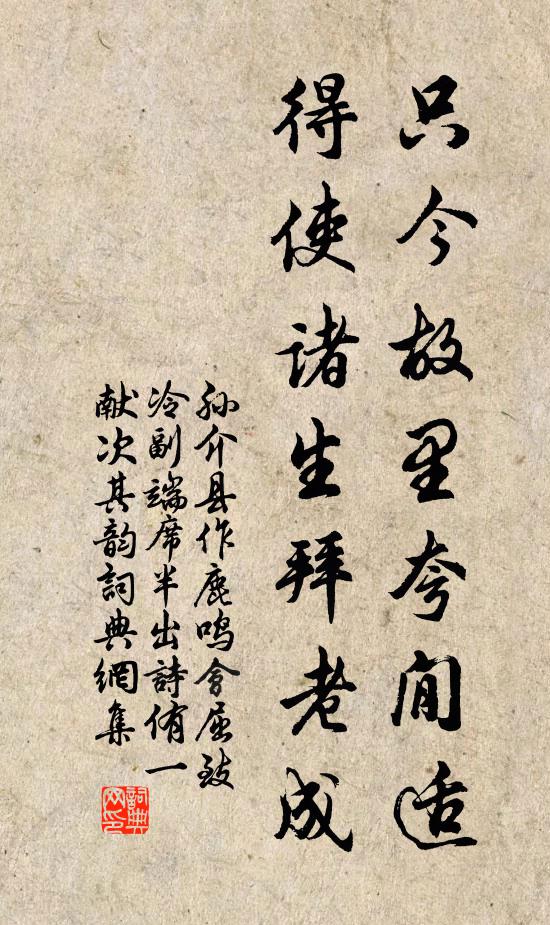 只今故里夸闲适
得使诸生拜老成
孙介县作鹿鸣会屈致
冷副端席半出詩侑一
献次其韵詞典網集
詞典网印